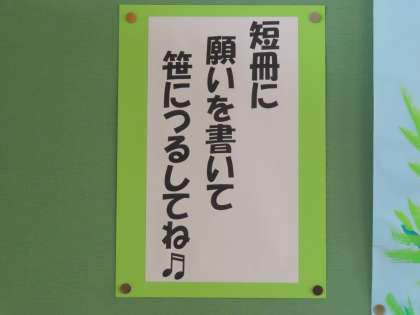 短冊に
願いを書いて
笹につるしてね♫